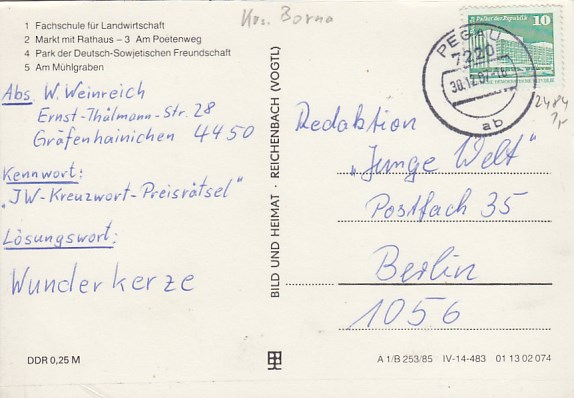 Krs. Borna
1 Fachschule für Landwirtschaft
2 Markt mit Rathaus – 3 Am Poetenweg
4 Park der Deutsch-Sowjetischen Freundschaft
5 Am Mühlgraben
Abs. W. Weinreich
Ernst-Thälmann-Str. 28
Gräfenhainichen 4450
Kennwort:
"JW-Kreuzwort-Preisrätsel"
Lösungswort:
Wunderkerze
DDR 0,25 M
BILD UND HEIMAT · REICHENBACH (VOGTL)
Palast der Republik 10
PEGAU
7220
30.12.87
ab
2484
Redaktion
„Junge Welt"
Postfach 35
Berlin
1056
A 1/B 253/85 IV-14-483 01 13 02 074